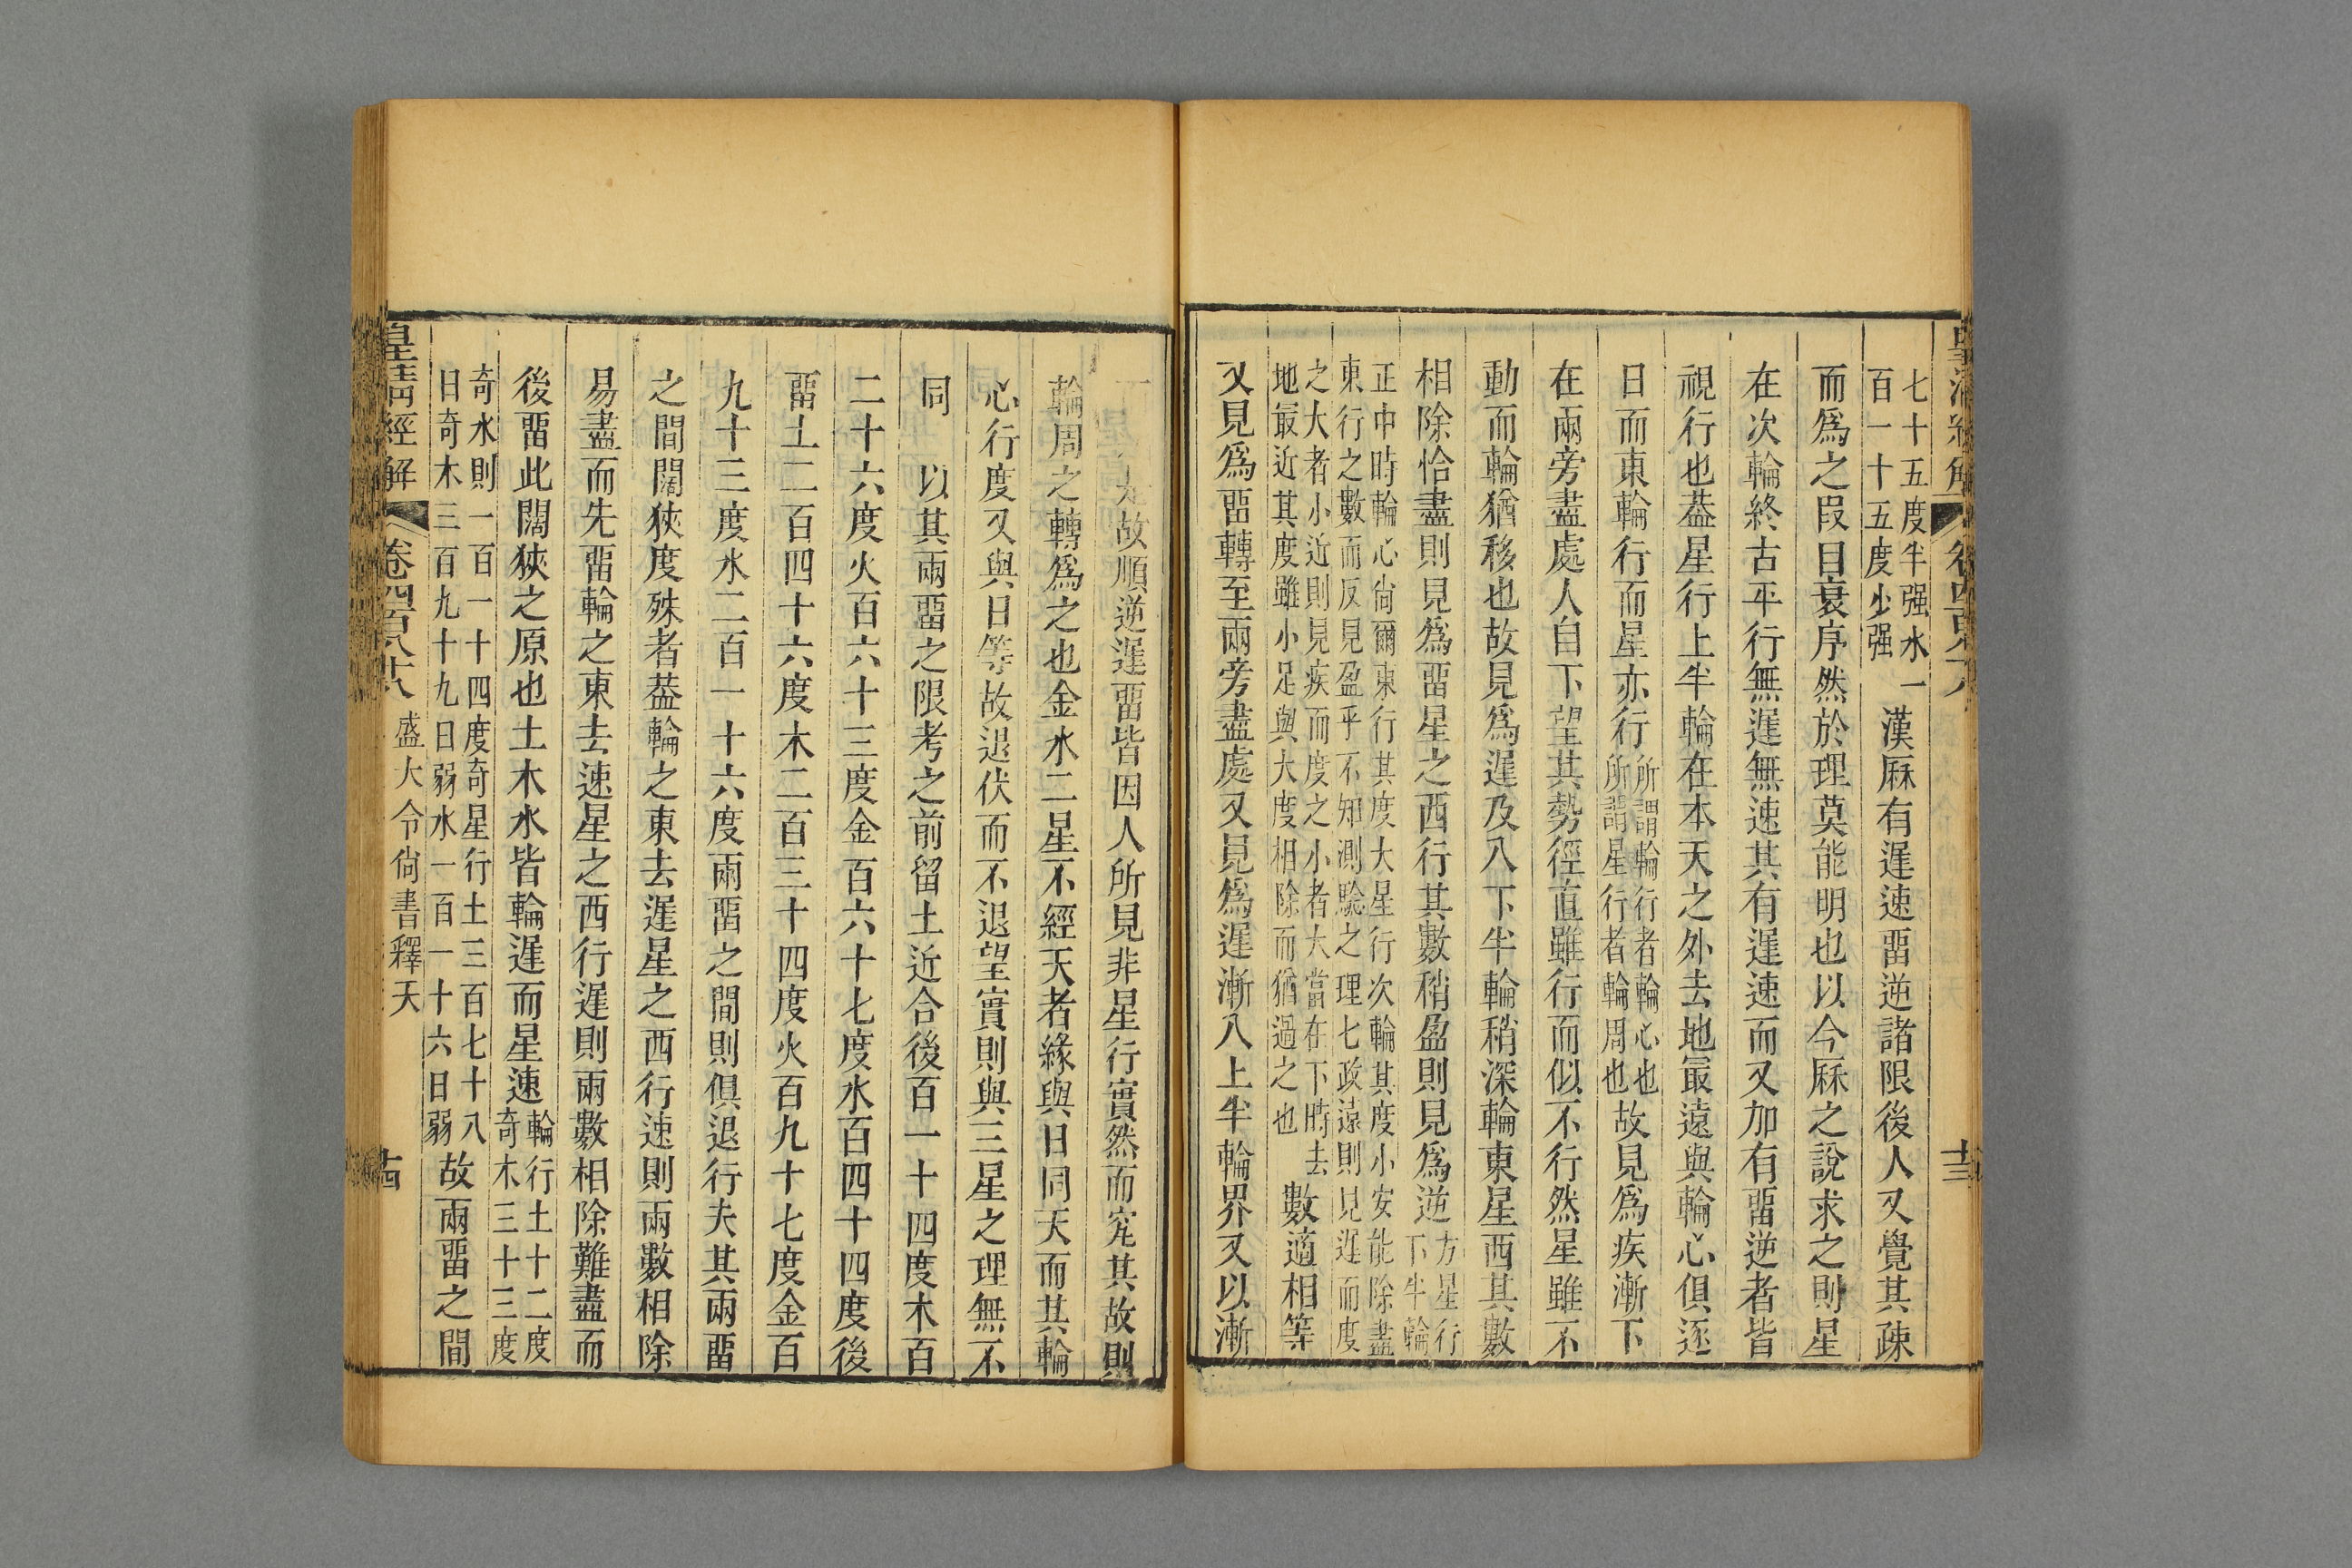 七十五度半强水一
百一十五度少强
漢厤有遲速畱逆諸限後人又覺其疎
而爲之叚目衰序然於理莫能明也以今厤之說求之則星
在次輪終古平行無遲無速其有遲速而又加有畱逆者皆
視行也葢星行上半輪在本天之外去地最遠與輪心俱逐
日而東輪行而星亦行
所謂輪行者輪心也
所謂星行者輪周也
故見爲疾漸下
在兩旁盡處人自下望其勢徑直雖行而似不行然星雖不
動而輪猶移也故見爲遲及入下半輪稍深輪東星西其數
相除恰盡則見爲畱星之西行其數稍盈則見爲逆
方星行
下半輪
正中時輪心尙爾東行其度大星行次輪其度小安能除盡
東行之數而反見盈乎不知測驗之理七政遠則見遲而度
之大者小近則見疾而度之小者大當在下時去
地最近其度雖小足與大度相除而猶過之也
數適相等
又見爲畱轉至兩旁盡處又見爲遲漸入上半輪界又以漸
故順逆遲畱皆因人所見非星行實然而究其故則
輪周之轉爲之也金水二星不經天者緣與日同天而其輪
心行度又與日等故退伏而不退望實則與三星之理無不
同　以其兩畱之限考之前留土近合後百一十四度木百
二十六度火百六十三度金百六十七度水百四十四度後
畱土二百四十六度木二百三十四度火百九十七度金百
九十三度水二百一十六度兩畱之間則俱退行夫其兩畱
之間闊狹度殊者葢輪之東去遲星之西行速則兩數相除
易盡而先畱輪之東去速星之西行遲則兩數相除難盡而
後畱此闊狹之原也土木水皆輪遲而星速
輪行土十二度
奇木三十三度
奇水則一百一十四度奇星行土三百七十八
日奇木三百九十九日弱水一百一十六日弱
故兩畱之間
皇淸經解
卷四百八十八
盛大令尙書釋天
十四